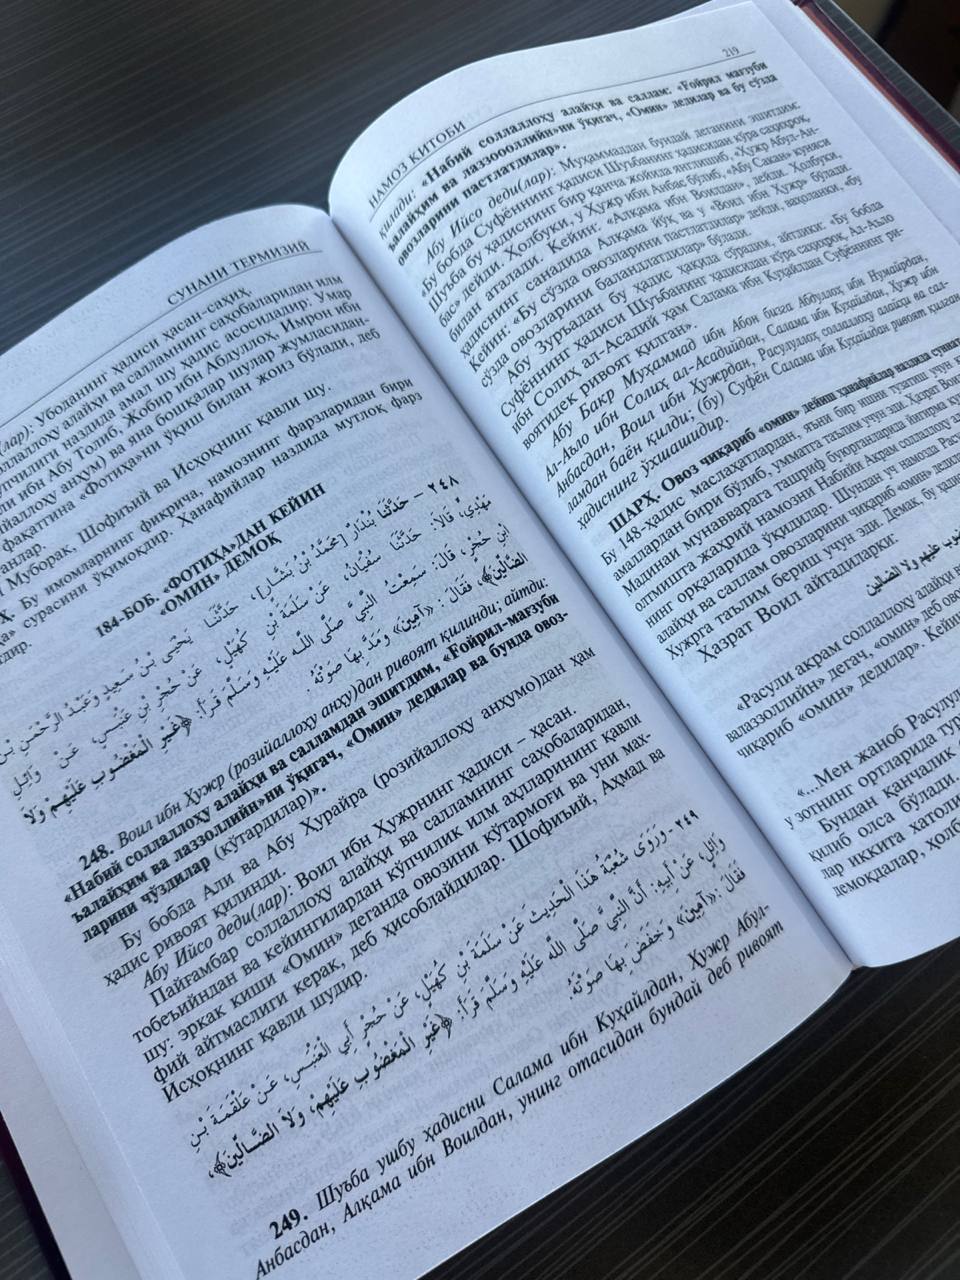 СУНАНИ ТЕРМИЗИЙ
Убоданинг ҳадиси ҳасан-саҳиҳ.
алайҳи ва салламнинг саҳобаларидан илм
наздида амал шу ҳадис асосидадир: Умар
ибн Абу Толиб, Жобир ибн Абдуллоҳ, Имрон ибн
анҳум) ва яна бошқалар шулар жумласидан-
фақатгина «Фотиҳа»ни ўқиш билан жоиз бўлади, деб
Муборак, Шофиъий ва Исҳоқнинг қавли шу.
Бу имомларнинг фикрича, намознинг фарзларидан бири
сурасини ўқимоқдир. Ханафийлар наздида мутлоқ фарз
184-БОБ. «ФОТИҲА»ДАН КЕЙИН
«ОМИН» ДЕМОҚ
٢٤٨ – حَدَّثَنَا بُنْدَارٌ [مُحَمَّدُ بْنُ بَشَّارٍ]، حَدَّثَنَا يَحْيَى بْنُ سَعِيدٍ وَعَبْدُ الرَّحْمَنِ بْنُ
مَهْدِيٍّ، قَالَا: حَدَّثَنَا سُفْيَانُ، عَنْ سَلَمَةَ بْنِ كُهَيْلٍ، عَنْ حُجْرِ بْنِ عَنْبَسٍ، عَنْ وَائِلِ
بْنِ حُجْرٍ، قَالَ: سَمِعْتُ النَّبِيَّ صَلَّى اللَّه عَلَيْهِ وَسَلَّمَ قَرَأَ: ﴿غَيْرِ الْمَغْضُوبِ عَلَيْهِمْ وَلَا
الضَّالِّينَ﴾ فَقَالَ: «آمِينَ» وَمَدَّ بِهَا صَوْتَهُ.
248. Воил ибн Ҳужр (розийаллоҳу анҳу)дан ривоят қилинди; айтди:
«Набий соллаллоҳу алайҳи ва салламдан эшитдим, «Ғойрил-мағзуби
ъалайҳим ва лаззоллийн»ни ўқигач, «Омин» дедилар ва бунда овоз-
ларини чўздилар (кўтардилар)».
Бу бобда Али ва Абу Ҳурайра (розийаллоҳу анҳумо)дан ҳам
ҳадис ривоят қилинди.
Абу Ийсо деди(лар): Воил ибн Ҳужрнинг ҳадиси – ҳасан.
Пайғамбар соллаллоҳу алайҳи ва салламнинг саҳобаларидан,
тобеъийндан ва кейингилардан кўпчилик илм аҳлларининг қавли
шу: эркак киши «Омин» деганда овозини кўтармоғи ва уни мах-
фий айтмаслиги керак, деб ҳисоблайдилар. Шофиъий, Аҳмад ва
Исҳоқнинг қавли шудир.
٢٤٩ – وَرَوَى شُعْبَةُ هَذَا الْحَدِيثَ عَنْ سَلَمَةَ بْنِ كُهَيْلٍ، عَنْ حُجْرٍ أَبِي الْعَنْبَسِ، عَنْ عَلْقَمَةَ بْنِ
وَائِلٍ، عَنْ أَبِيهِ: أَنَّ النَّبِيَّ صَلَّى اللَّه عَلَيْهِ وَسَلَّمَ قَرَأَ: ﴿غَيْرِ الْمَغْضُوبِ عَلَيْهِمْ، وَلَا الضَّالِّينَ﴾،
فَقَالَ: «آمِينَ» وَخَفَضَ بِهَا صَوْتَهُ.
249. Шуъба ушбу ҳадисни Салама ибн Куҳайлдан, Ҳужр Абул-
Анбасдан, Алқама ибн Воилдан, унинг отасидан бундай деб ривоят
НАМОЗ КИТОБИ
219
қилади: «Набий соллаллоҳу алайҳи ва саллам: «Ғойрил мағзуби
ъалайҳим ва лаззоооллийн»ни ўқигач, «Омин» дедилар ва бу сўзла
овозларини пастлатдилар».
Абу Ийсо деди(лар): Муҳаммаддан бундай деганини эшитдим:
«Бу бобда Суфённинг ҳадиси Шуъбанинг ҳадисидан кўра саҳиҳроқ,
Шуъба бу ҳадиснинг бир қанча жойида янглишиб, «Ҳужр Абул-Ан-
бас» дейди. Ҳолбуки, у Ҳужр ибн Анбас бўлиб, «Абу Сакан» куняси
билан аталади. Кейин: «Алқама ибн Воилдан», дейди. Ҳолбуки,
ҳадиснинг санадида Алқама йўқ ва у «Воил ибн Ҳужр» бўлади.
Кейин: «Бу сўзда овозларини пастлатдилар» дейди, ваҳоланки, «бу
сўзда овозларини баландлатдилар» бўлади.
Абу Зуръадан бу ҳадис ҳақида сўралим, айтдики: «Бу бобда
Суфённинг ҳадиси Шуъбанинг ҳадисидан кўра саҳиҳроқ, Ал-Аъло
ибн Солиҳ ал-Асадий ҳам Салама ибн Куҳайлдан Суфённинг ри-
воятидек ривоят қилган».
Абу Бакр Муҳаммад ибн Абон бизга Абдуллоҳ ибн Нумайрдан,
Ал-Аъло ибн Солиҳ ал-Асадийдан, Салама ибн Куҳайлдан, Ҳужр ибн
Анбасдан, Воил ибн Ҳужрдан, Расулуллоҳ соллаллоҳу алайҳи ва сал-
ламдан баён қилди; (бу) Суфён Салама ибн Куҳайлдан ривоят қилган
ҳадиснинг ўхшашидир.
ШАРҲ. Овоз чиқариб «омин» дейиш ҳанафийлар наздида
Бу 148-ҳадис маслаҳатлардан, яъни бир ишни узатиш учун
амаллардан бири бўлиб, умматга таълим учун эди. Ҳазрат Воил
Мадинаи мунавварага ташриф буюрганларида йигирма
олтмишта жаҳрий намозни Набийи Акрам соллаллоҳу
нинг орқаларида ўқидилар. Шундан уч намозда Расул
алайҳи ва саллам овозларини чиқариб «омин»
Ҳужрга таълим бериш учун эди. Демак, бу
Ҳазрат Воил айтадиларки:
عليهم ولا الضالين
«Расули акрам соллаллоҳу алайҳи
валаззоллийн» дегач, «омин» деб
чиқариб «омин» дедилар». Кейин
«...Мен жаноб Расулу
у зотнинг ортларида
Бундан қанчалик
қилиб олса бўлади.
лар иккита
демоқдалар,